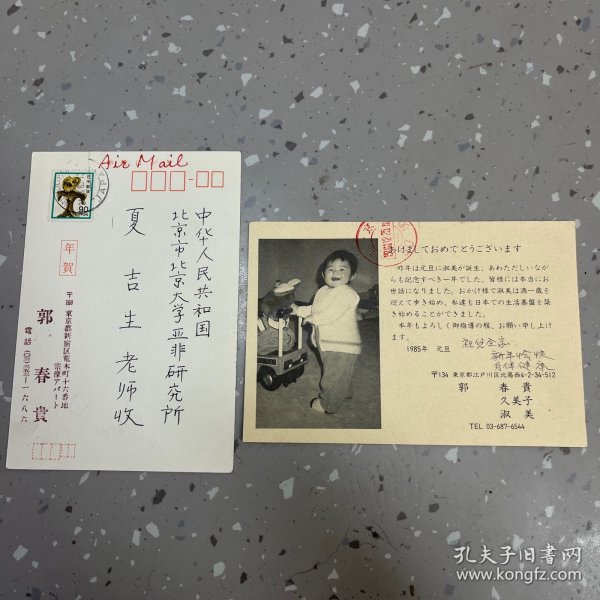 Air Mail
90
年賀
中华人民共和国
北京市北京大学亚非研究所
夏吉生老师收
〒160 東京都新宿区荒木町十六番地
宗像アパート
郭春貴
あけましておめでとうございます
昨年は元旦に淑美が誕生、あわただしいなが
らも記念すべき一年でした。皆様には本当にお
世話になりました。おかげ様で淑美は満一歳を
迎えて歩き始め、私達も日本での生活基盤を築
き始めることができました。
本年もよろしく御指導の程、お願い申し上げ
ます。
1985年 元旦
祝您全家
新年愉快
身体健康
〒134 東京都江戸川区北葛西4-2-34-512
郭 春貴
久美子
淑美
TEL. 03-687-6544
孔夫子旧书网
www.kongfz.com